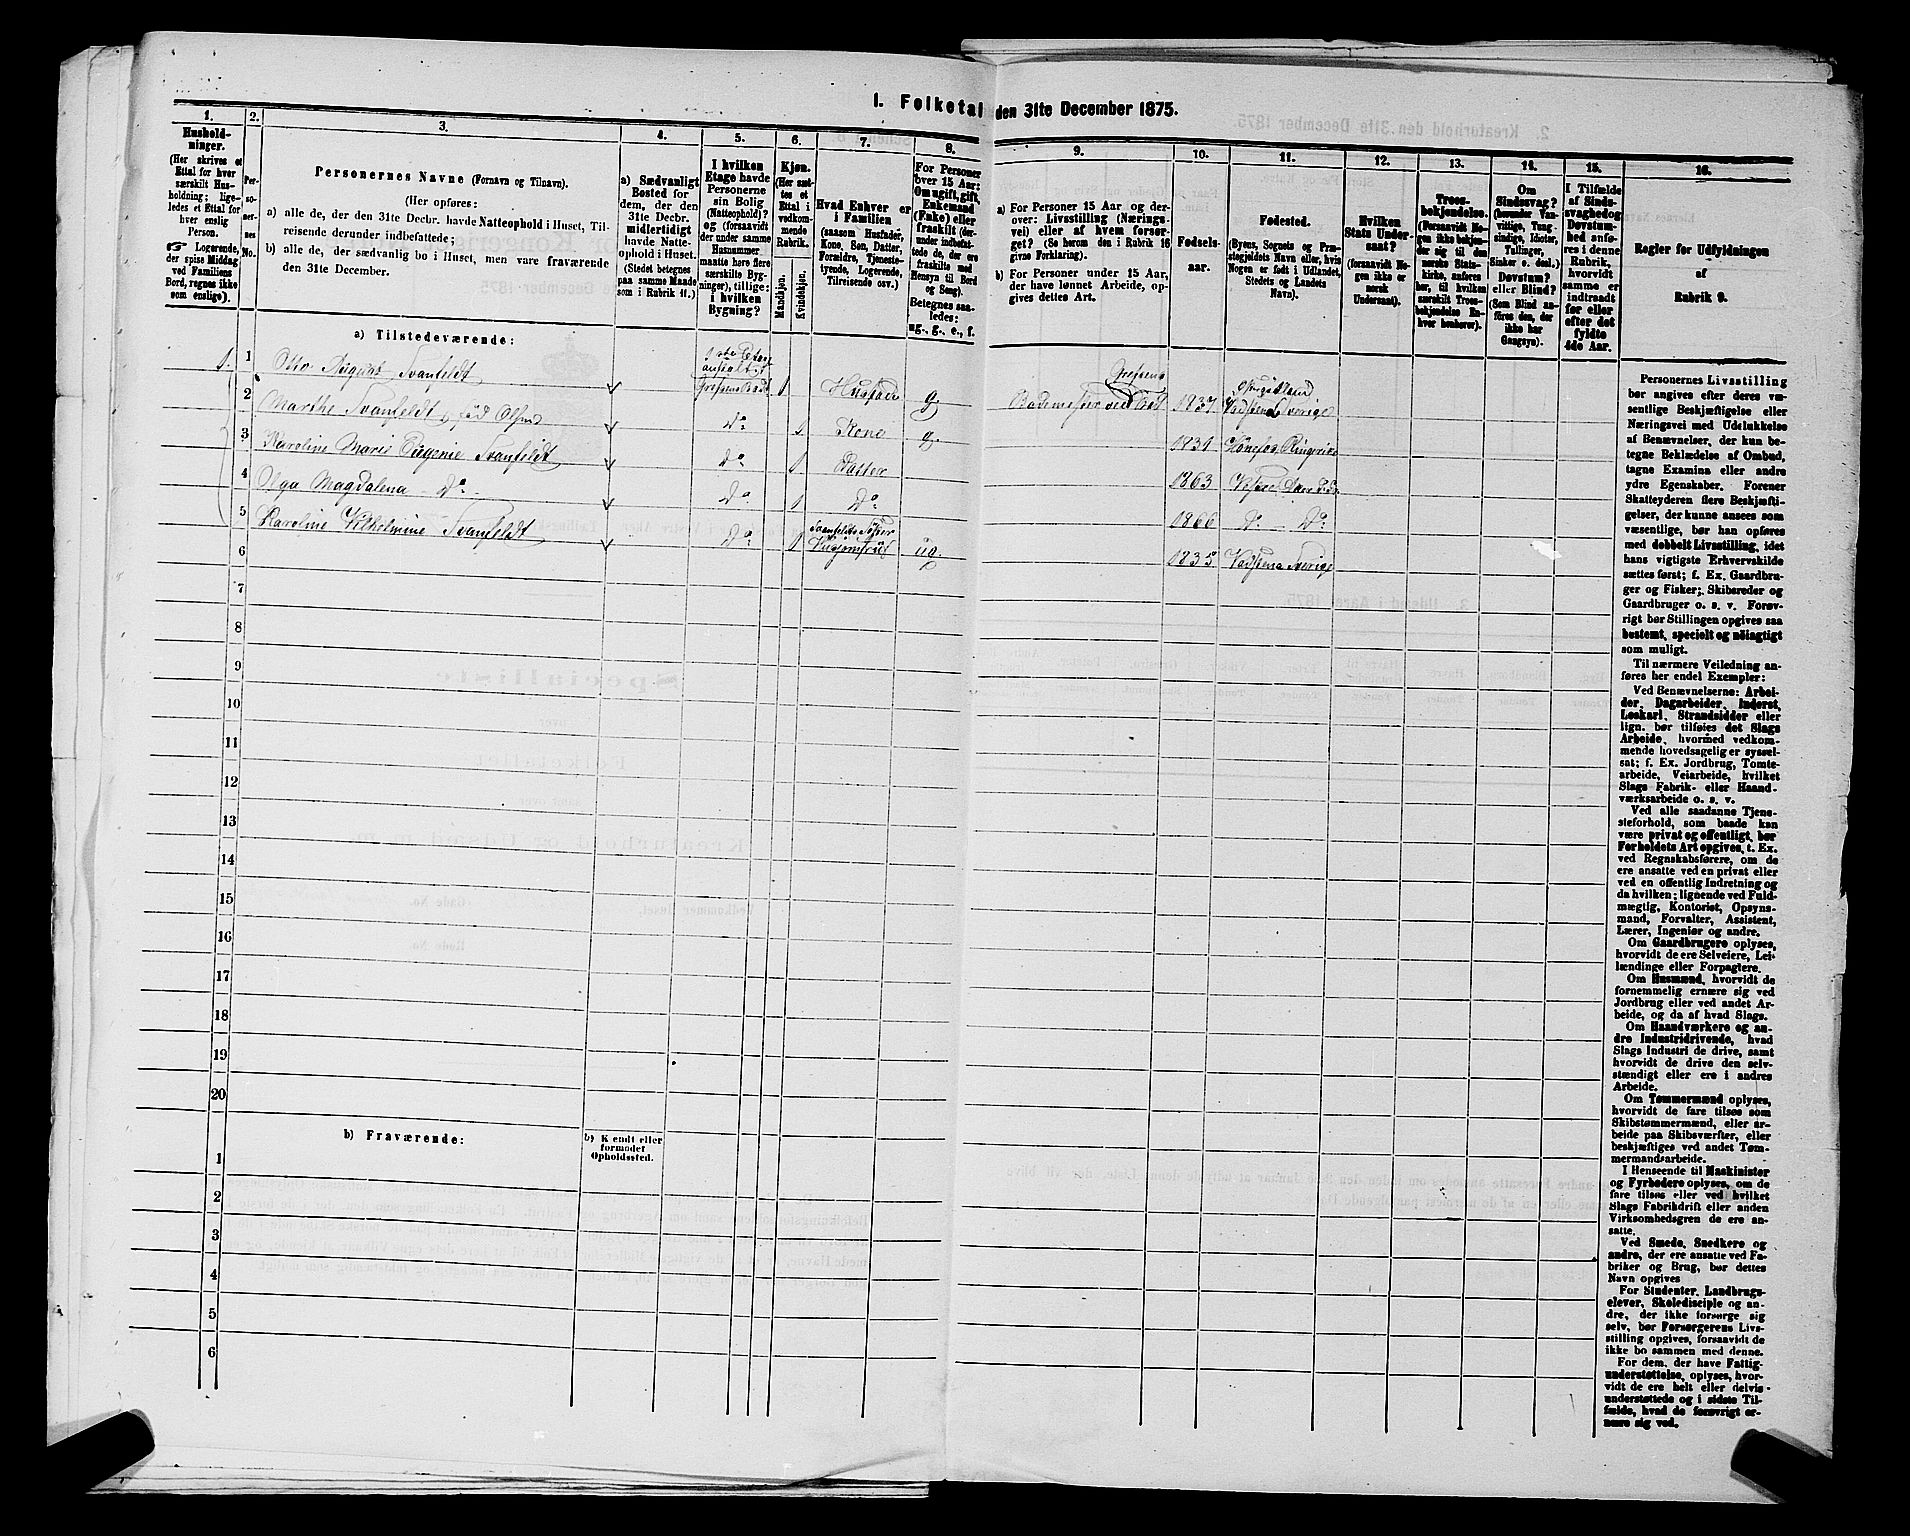 I. Folketal den 31te December 1875.
1.
Hushold-
ninger.
(Her skrives et
Ettal for hver
særskilt Hus-
holdning; lige-
ledes et Ettal for
hver enslig
Person.
☞ Logerende,
der spise Middag
ved Familiens
Bord, regnes ikke
som enslige).
2.
Per-
so-
ner-
nes
No.
3.
Personernes Navne (Fornavn og Tilnavn).
(Her opføres:
a) alle de, der den 31te Decbr. havde Natteophold i Huset, Til-
reisende derunder indbefattede;
b) alle de, der sædvanlig bo i Huset, men vare fraværende
den 31te December.
4.
a) Sædvanligt
Bosted for
dem, der den
31te Decbr.
midlertidigt
havde Natte-
ophold i Huset.
(Stedet betegnes
paa samme Maade
som i Rubrik 11.)
5.
I hvilken
Etage havde
Personerne
sin Bolig
(Natteophold)?
og (forsaavidt
der under samme
Husnummer
maatte høre flere
særskilte Byg-
ninger), tillige:
i hvilken
Bygning?
6.
Kjøn.
(Her sæt-
tes et
Ettal i
vedkom-
mende
Rubrik.
Mandkjøn.
Kvindekjøn.
7.
Hvad Enhver er
i Familien
(saasom Husfader,
Kone, Søn, Datter,
Forældre, Tjeneste-
tyende, Logerende,
Tilreisende osv.)
8.
For Personer
over 15 Aar:
Om ugift, gift,
Enkemand
(Enke) eller
fraskilt (der-
under indbefat-
tede de, der
ere fraskilte med
Hensyn til Bord
og Seng).
Betegnes saa-
ledes:
ug., g., e., f.
9.
a) For Personer 15 Aar og der-
over: Livsstilling (Nærings-
vei) eller af hvem forsør-
get? (Se herom den i Rubrik 16
givne Forklaring).
b) For Personer under 15 Aar,
der have lønnet Arbeide, op-
gives dettes Art.
10.
Fødsels-
aar.
11.
Fødested.
(Byens, Sognets og Præ-
stegjeldets Navn eller, hvis
Nogen er født i Udlandet,
Stedets og Landets
Navn).
12.
Hvilken
Stats Under-
saat?
(forsaavidt No-
gen ikke er
norsk
Undersaat).
13.
Troes-
bekjendelse.
(Forsaavidt No-
gen ikke bekjen-
der sig til den
norske Stats-
kirke, anføres
her, til hvilken
særskilt Troes-
bekjendelse En-
hver henhører).
14.
Om
Sindssvag?
(herunder Van-
vittige, Tung-
sindige, Idioter,
Tullinger,
Sinker o. desl.)
Døvstum?
eller Blind?
(Som Blind an-
føres den, der
ikke har
Gangsyn).
15.
I Tilfælde
af Sinds-
svaghed og
Døvstum-
hed anfø-
res i denne
Rubrik,
hvorvidt
samme er
indtraadt
før eller
efter det
fyldte
4de Aar.
16.
Regler for Udfyldningen
af
Rubrik 9.
a) Tilstedeværende:
1. 1 Otto August Svanfeldt 1ste Etage anstalt Grefsens Badt 1 Husfader g Bademester ved Grefsens Bad 1837 Østgötland Vadstena Sverige
2 Marthe Svanfeldt født Olsen Do 1 Kone g 1831 Hönefos Ringerike
3 Karoline Marie Eugenie Svanfeldt Do 1 Datter 1863 Vestre Aker
4 Olga Magdalena - Do - Do 1 Do 1866 Do - Do
5 Karoline Vilhelmine Svanfeldt Do 1 Svanfeldts Söster ug. 1835 Vadstena Sverige
6
7
8
9
10
11
12
13
14
15
16
17
18
19
20
b) Fraværende:
b) Kjendt eller
formodet
Opholdssted.
1
2
3
4
5
6
Personernes Livsstilling
bør angives efter deres væ-
sentlige Beskjæftigelse eller
Næringsvei med Udelukkelse
af Benævnelser, der kun be-
tegne Beklædelse af Ombud,
tagne Examina eller andre
ydre Egenskaber. Forener
Skatteyderen flere Beskjæfti-
gelser, der kunne ansees som
væsentlige, bør han opføres
med dobbelt Livsstilling, idet
hans vigtigste Erhvervskilde
sættes først; f. Ex. Gaardbru-
ger og Fisker; Skibsreder og
Gaardbruger o. s. v. Forøv-
rigt bør Stillingen opgives saa
bestemt, specielt og nøiagtigt
som muligt.
Til nærmere Veiledning an-
føres her endel Exempler:
Ved Benævnelserne: Arbei-
der, Dagarbeider, Inderst,
Løskarl, Strandsidder eller
lign. bør tilføies det Slags
Arbeide, hvormed vedkom-
mende hovedsagelig er syssel-
sat; f. Ex. Jordbrug, Tomte-
arbeide, Veiarbeide, hvilket
Slags Fabrik- eller Haand-
værksarbeide o. s. v.
Ved alle saadanne Tjene-
steforhold, som baade kan
være privat og offentligt, bør
Forholdets Art opgives, t. Ex.
ved Regnskabsførere, om de
ere ansatte ved en privat eller
ved en offentlig Indretning og
da hvilken; lignende ved Fuld-
mægtig, Kontorist, Opsyns-
mand, Forvalter, Assistent,
Lærer, Ingeniør og andre.
Om Gaardbrugere oplyses,
hvorvidt de ere Selveiere, Lei-
lændinge eller Forpagtere.
Om Husmænd, hvorvidt de
fornemmelig ernære sig ved
Jordbrug eller ved andet Ar-
beide, og da af hvad Slags.
Om Haandværkere og an-
dre Industridrivende, hvad
Slags Industri de drive, samt
hvorvidt de drive den selv-
stændigt eller ere i andres
Arbeide.
Om Tømmermænd oplyses,
hvorvidt de fare tilsøs som
Skibstømmermænd, eller ar-
beide paa Skibsværfter, eller
beskjæftiges ved andet Tøm-
mermandsarbeide.
I Henseende til Maskinister
og Fyrbødere oplyses, om de
fare tilsøs eller ved hvilket
Slags Fabrikdrift eller anden
Virksomhedsgren de ere an-
satte.
Ved Smede, Snedkere og
andre, der ere ansatte ved Fa-
briker og Brug, bør dettes
Navn opgives
For Studenter, Landbrugs-
elever, Skoledisciple og an-
dre, der ikke forsørge sig
selv, bør Forsørgerens Livs-
stilling opgives, forsaavidt de
ikke bo sammen med denne.
For dem, der have Fattig-
understøttelse, oplyses, hvor-
vidt de ere helt eller delvis
understøttede og i sidste Til-
fælde, hvad de forøvrigt er-
nære sig ved.